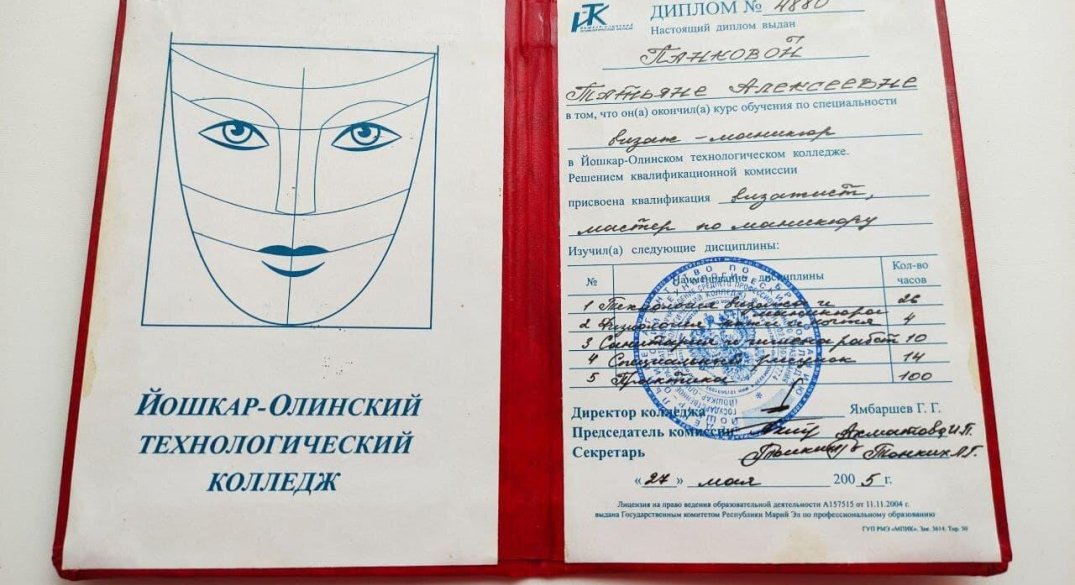 ЙОШКАР-ОЛИНСКИЙ
ТЕХНОЛОГИЧЕСКИЙ
КОЛЛЕДЖ
ДИПЛОМ № 4880
Настоящий диплом выдан
Панковой
Татьяне Алексеевне
в том, что он(а) окончил(а) курс обучения по специальности
визаж-маникюр
в Йошкар-Олинском технологическом колледже.
Решением квалификационной комиссии
присвоена квалификация визажист,
мастер по маникюру
Изучил(а) следующие дисциплины:
№ Наименование дисциплины Кол-во часов
1 Технология визажа и маникюра 26
2 Физиология кожи и ногтя 4
3 Санитария и гигиена работ 10
4 Специальный рисунок 14
5 Практика 100
Директор колледжа Ямбаршев Г. Г.
Председатель комиссии Ахматова И.П.
Секретарь Тонких Л.Г.
«27» мая 2005 г.
Лицензия на право ведения образовательной деятельности А157515 от 11.11.2004 г.
выдана Государственным комитетом Республики Марий Эл по профессиональному образованию
ГУП РМЭ «МПИК». Зак. 3614. Тир. 50